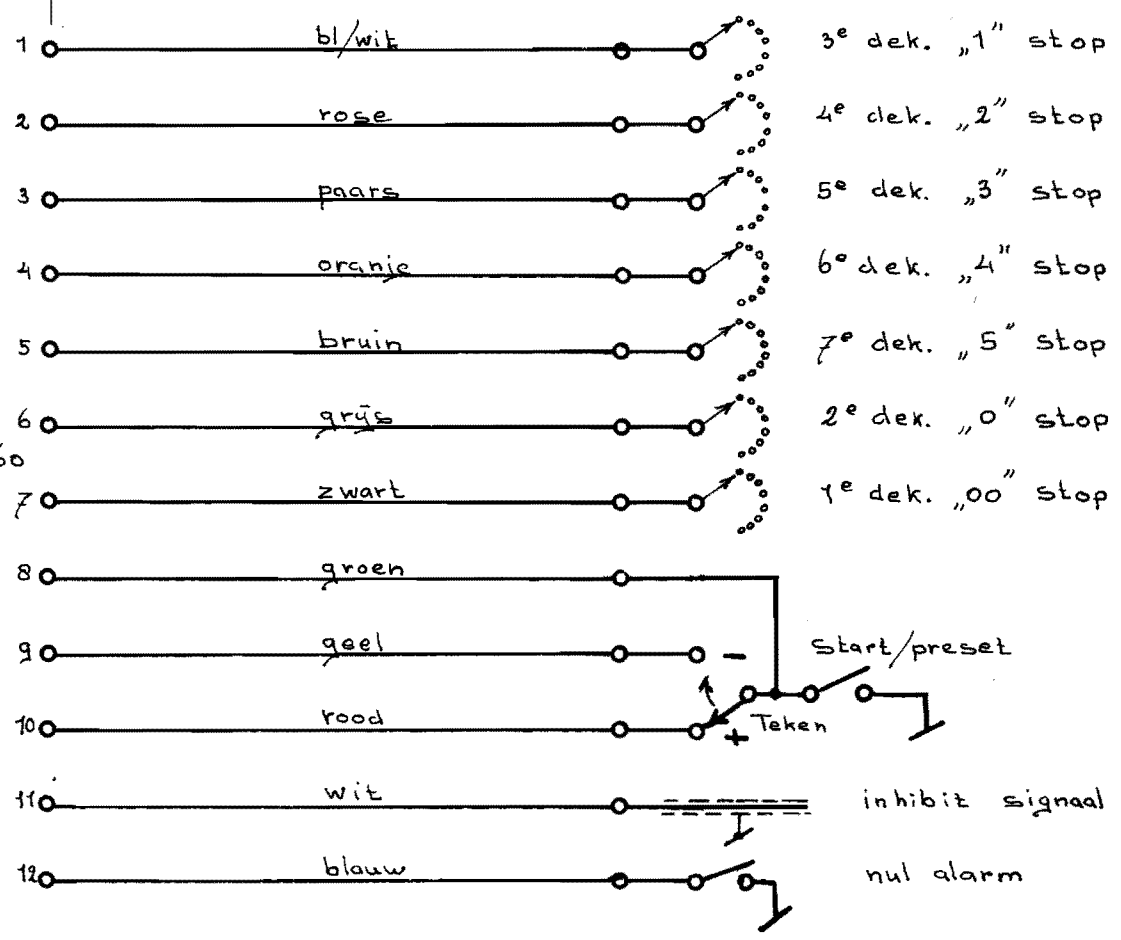 1 bl/wit 3e dek. „1” stop
2 rose 4e dek. „2” stop
3 paars 5e dek. „3” stop
4 oranje 6e dek. „4” stop
5 bruin 7e dek. „5” stop
6 grijs 2e dek. „0” stop
60
7 zwart 1e dek. „00” stop
8 groen
9 geel - Start/preset
10 rood + Teken
11 wit inhibit signaal
12 blauw nul alarm